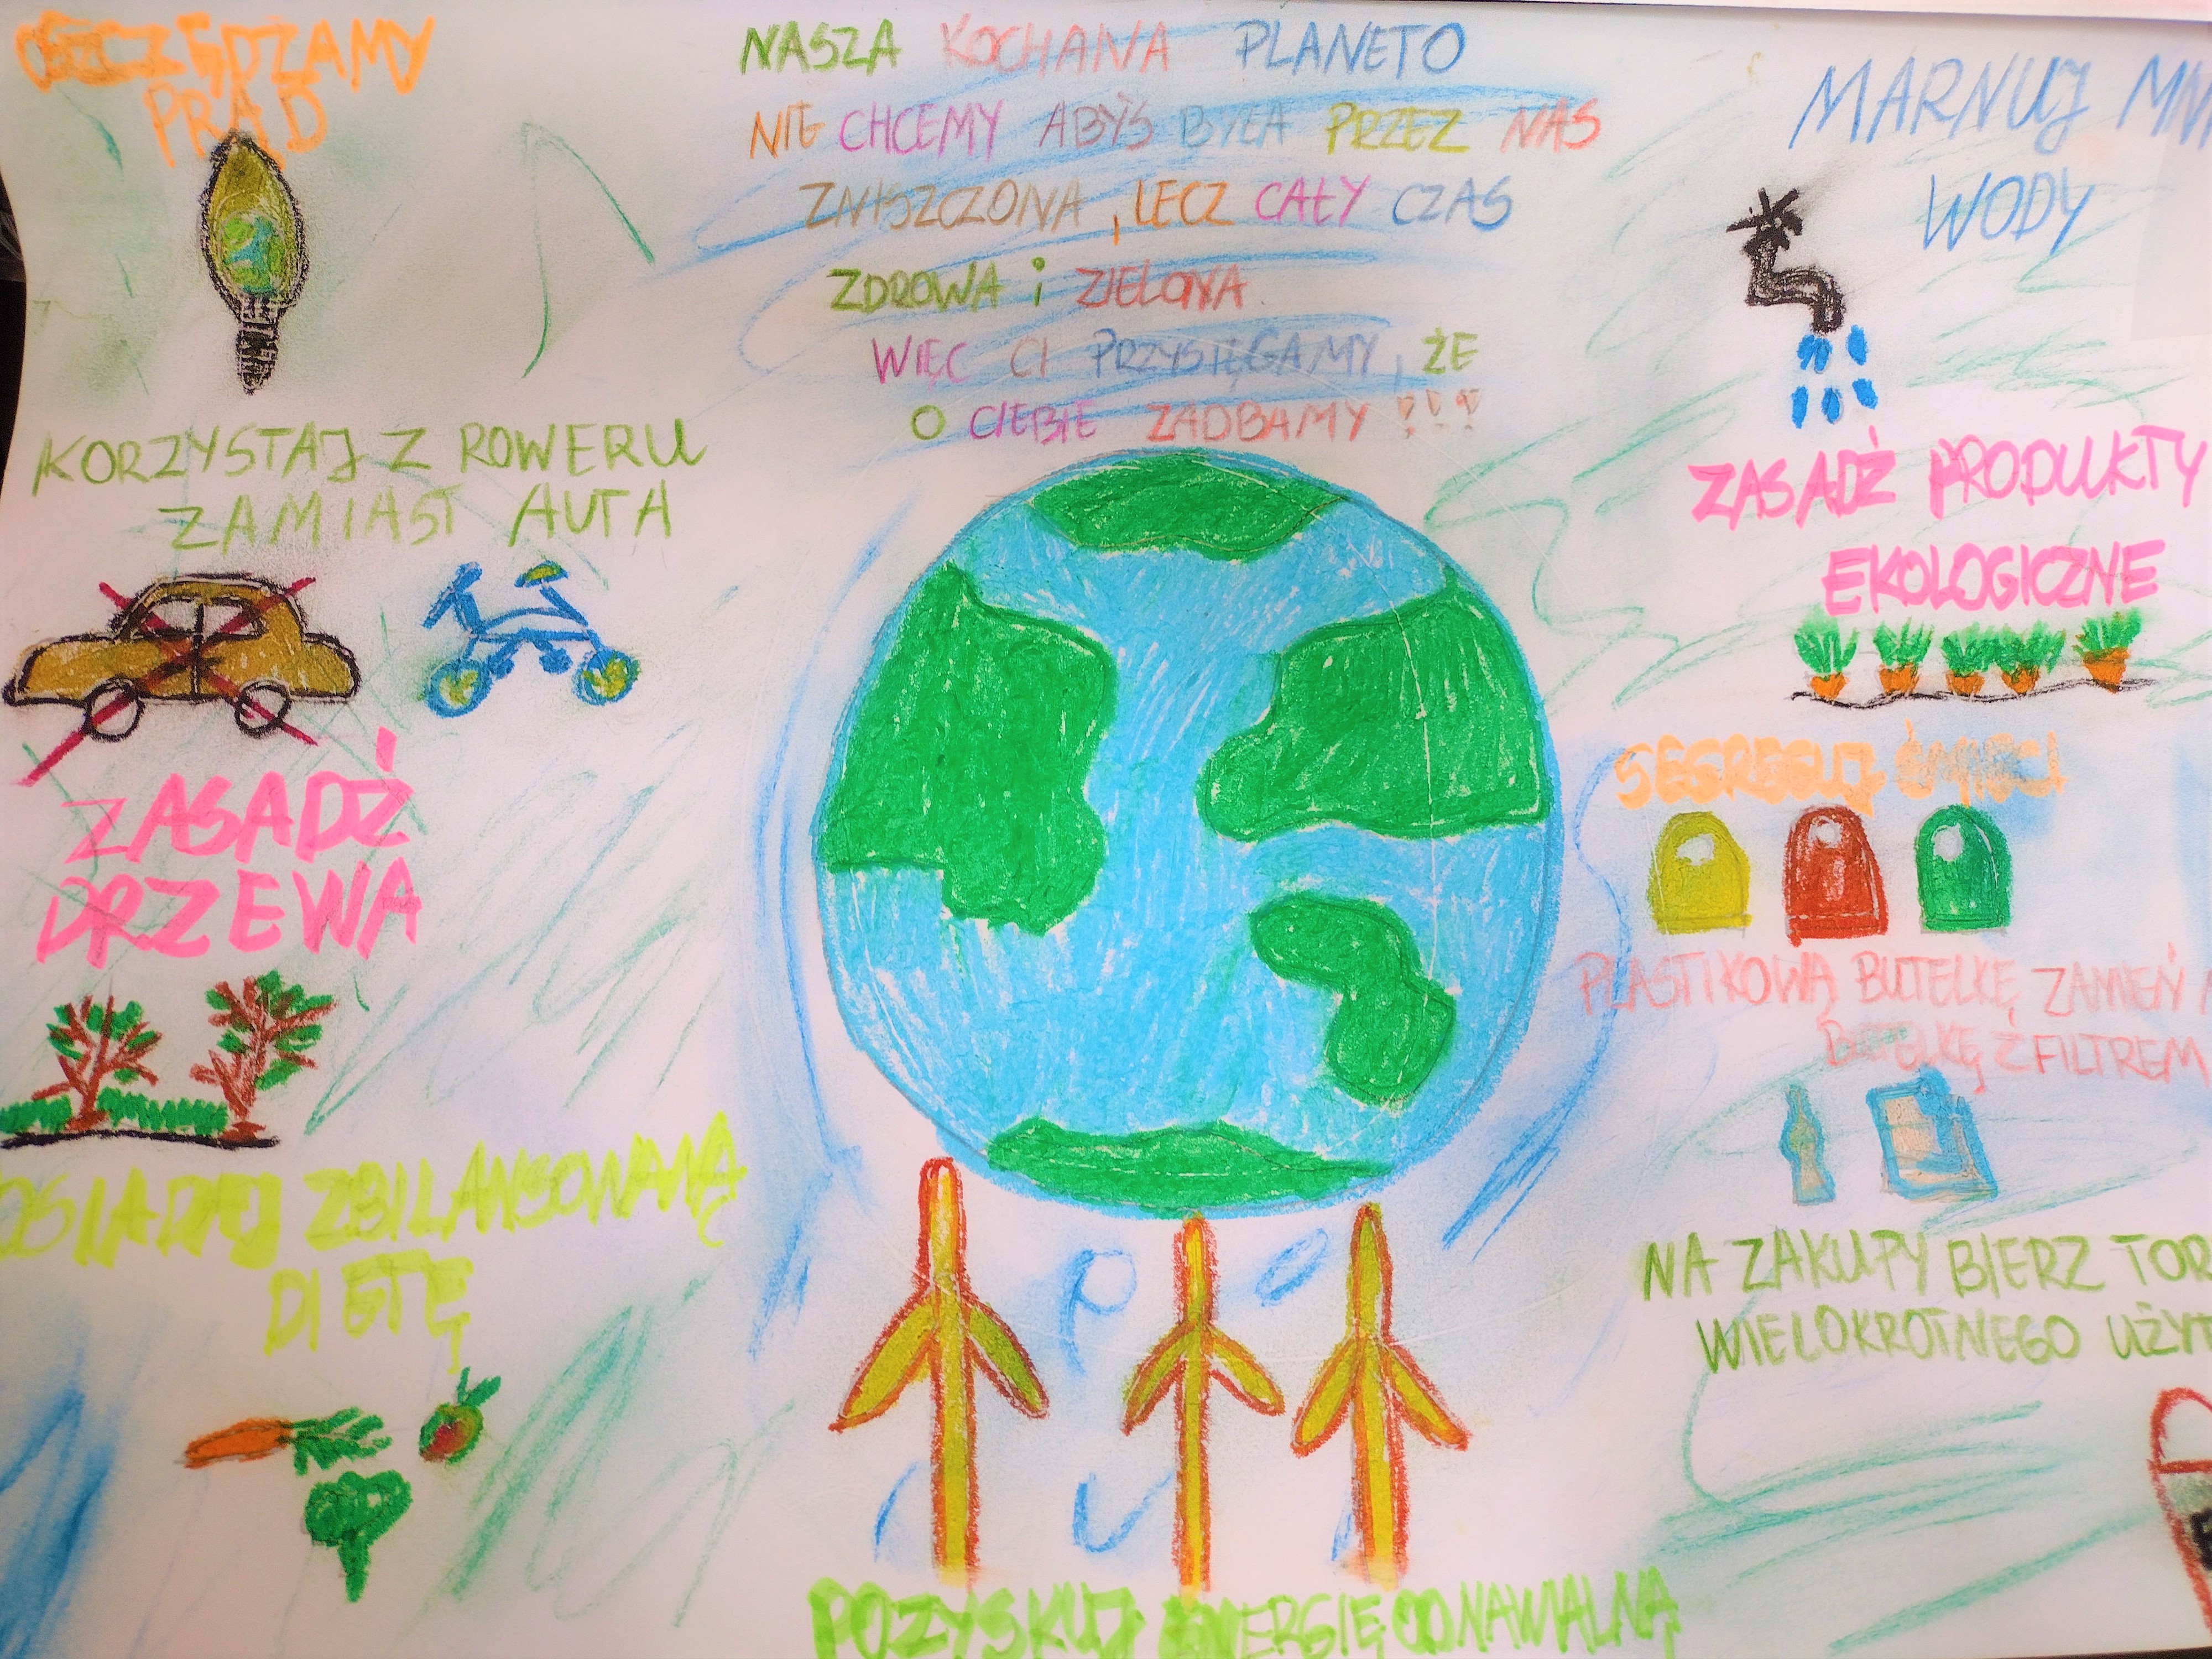 OSZCZĘDZAMY
PRĄD
NASZA KOCHANA PLANETO
NIE CHCEMY ABYŚ BYŁA PRZEZ NAS
ZNISZCZONA, LECZ CAŁY CZAS
ZDROWA i ZIELONA
WIĘC CI PRZYSIĘGAMY, ŻE
O CIEBIE ZADBAMY !!!
MARNUJ MN
WODY
KORZYSTAJ Z ROWERU
ZAMIAST AUTA
ZASADŹ PRODUKTY
EKOLOGICZNE
ZASADŹ
DRZEWA
SEGREGUJ ŚMIECI
PLASTIKOWĄ BUTELKĘ ZAMIEŃ
BUTELKĘ Z FILTREM
ZBILANSOWANĄ
DIETĘ
NA ZAKUPY BIERZ TOR
WIELOKROTNEGO UŻYT
POZYSKUJ ENERGIĘ ODNAWIALNĄ